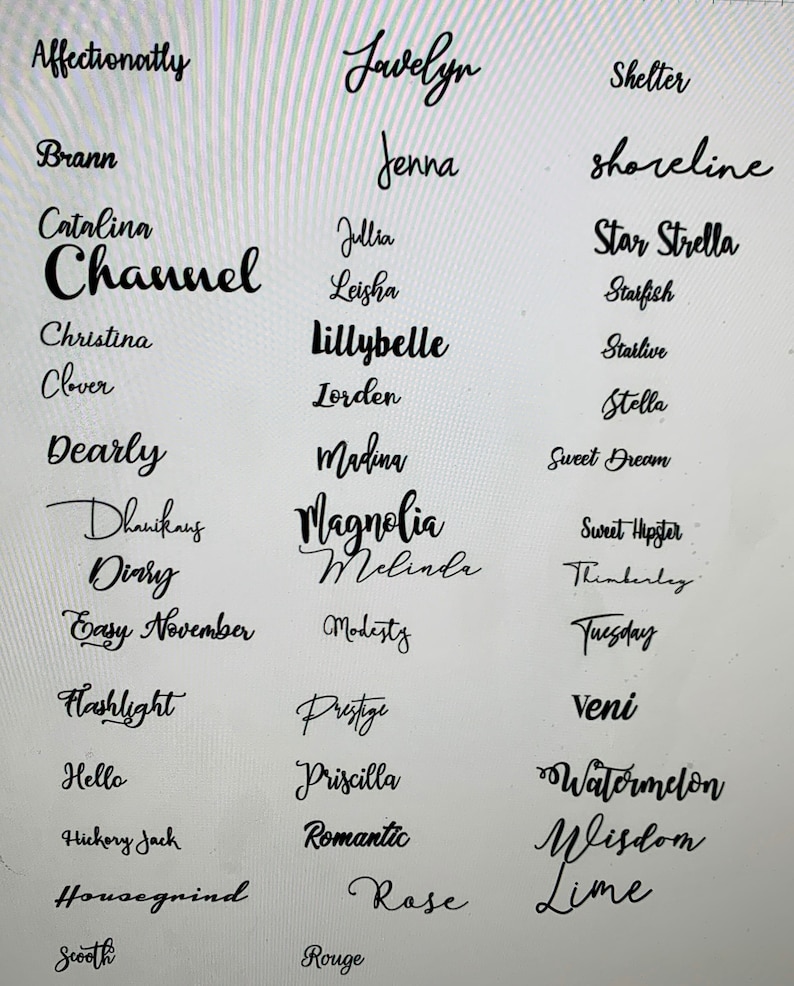 Affectionatly
Javelyn
Shelter
Brann
Jenna
shoreline
Catalina
Jullia
Star Strella
Channel
Leisha
Starfish
Christina
Lillybelle
Starlive
Clover
Lorden
Stella
Dearly
Madina
Sweet Dream
Dhanikans
Magnolia
Sweet Hipster
Diary
Melinda
Thimberley
Easy November
Modesty
Tuesday
Flashlight
Prestige
Veni
Hello
Priscilla
Watermelon
Hickory Jack
Romantic
Wisdom
Housegrind
Rose
Lime
Scooth
Rouge